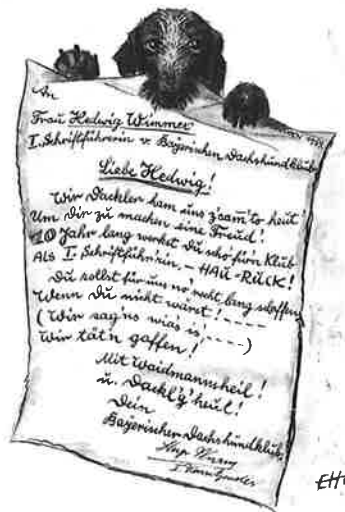 An
Frau Hedwig Wimmer
I. Schriftführerin v. Bayerischen Dachshundklub
Liebe Hedwig!
Wir Dackler ham uns z'sam'to heut!
Um Dir zu machen eine Freud!
10 Jahr lang werkst Du scho för'n Klub
Als I. Schriftführ'rin, – HAU-RUCK!
Du sollst für uns no' recht lang schaffen
Wenn Du nicht wärst! ----
(Wir sag'ns wia's is, ----)
Wir tät'n gaffen!
Mit Waidmannsheil!
u. Dackl'g'heul!
Dein
Bayerischer Dachshundklub,
I.